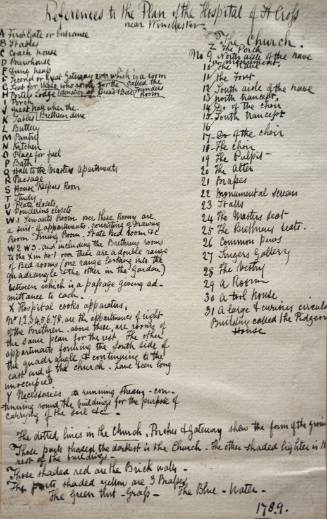 References to the Plan of the Hospital of St Cross
near Winchester
A First Gate or Entrance
B Stables
C Coach house
D Brewhouse
E Dung heap
F Second or Great Gateway over which is a room
G Seat for those who apply for the called the
H Porters Lodge Founders
I Porch
great Hall where the
J Tables Brethren dine
K
L Buttery
M Pantry
N Kitchen
O Place for fuel
P Bath
Q Hall to the Masters Apartments
R Passage
S House Keepers Room
T Study
U Plate closets
V closets
W 1 Servants Room over these Rooms are
a suit of apartments consisting of Drawing
Room Dining Room, State bed Room &c
W 2 W 3 and including the Brethrens rooms
to the N there are a double range
of Bed rooms (one range looking into the
quadrangle & the other in the Garden)
between which is a passage going ad-
mittance to each
X Hospital cooks apparatus,
No 1 2 3 4 5 6 7 8 are the apartments of eight
of the Brethren. above these, are rooms of
the same plan for the rest. The other
apartments forming the south side of
the quadrangle & continuing to the
east end of the Church have been long
unoccupied
Y Necessaries a running stream con-
tinuing round the buildings for the purpose of
carrying of the soil &c
The Church.
Z The Porch
No 9 North aisle of the nave
10 The Nave
11 The Font
12 South aisle of the nave
13 north transept
14 Do of the choir
15 South transept
16
17 Do of the choir
18 The choir
19 The Pulpit
20 The Alter
21 Brasses
22 Monumental Screen
23 Stalls
24 The Masters seat
25 The Brethrens seats.
26 Common pews
27 Singers Gallery
28 The Vestry
29 A Room
30 A tool House
31 A large & curious circular
Building called the Pidgeon
House
The dotted lines in the Church, Porches & Gateway show the form of the groins
Those parts shaded the darkest is the Church - the other shaded lighter is the
rest of the buildings -
Those shaded red are the Brick walls -
The parts shaded yellow are 3 Brasses
The Green tint - Grass - The Blue - Water -
1789.